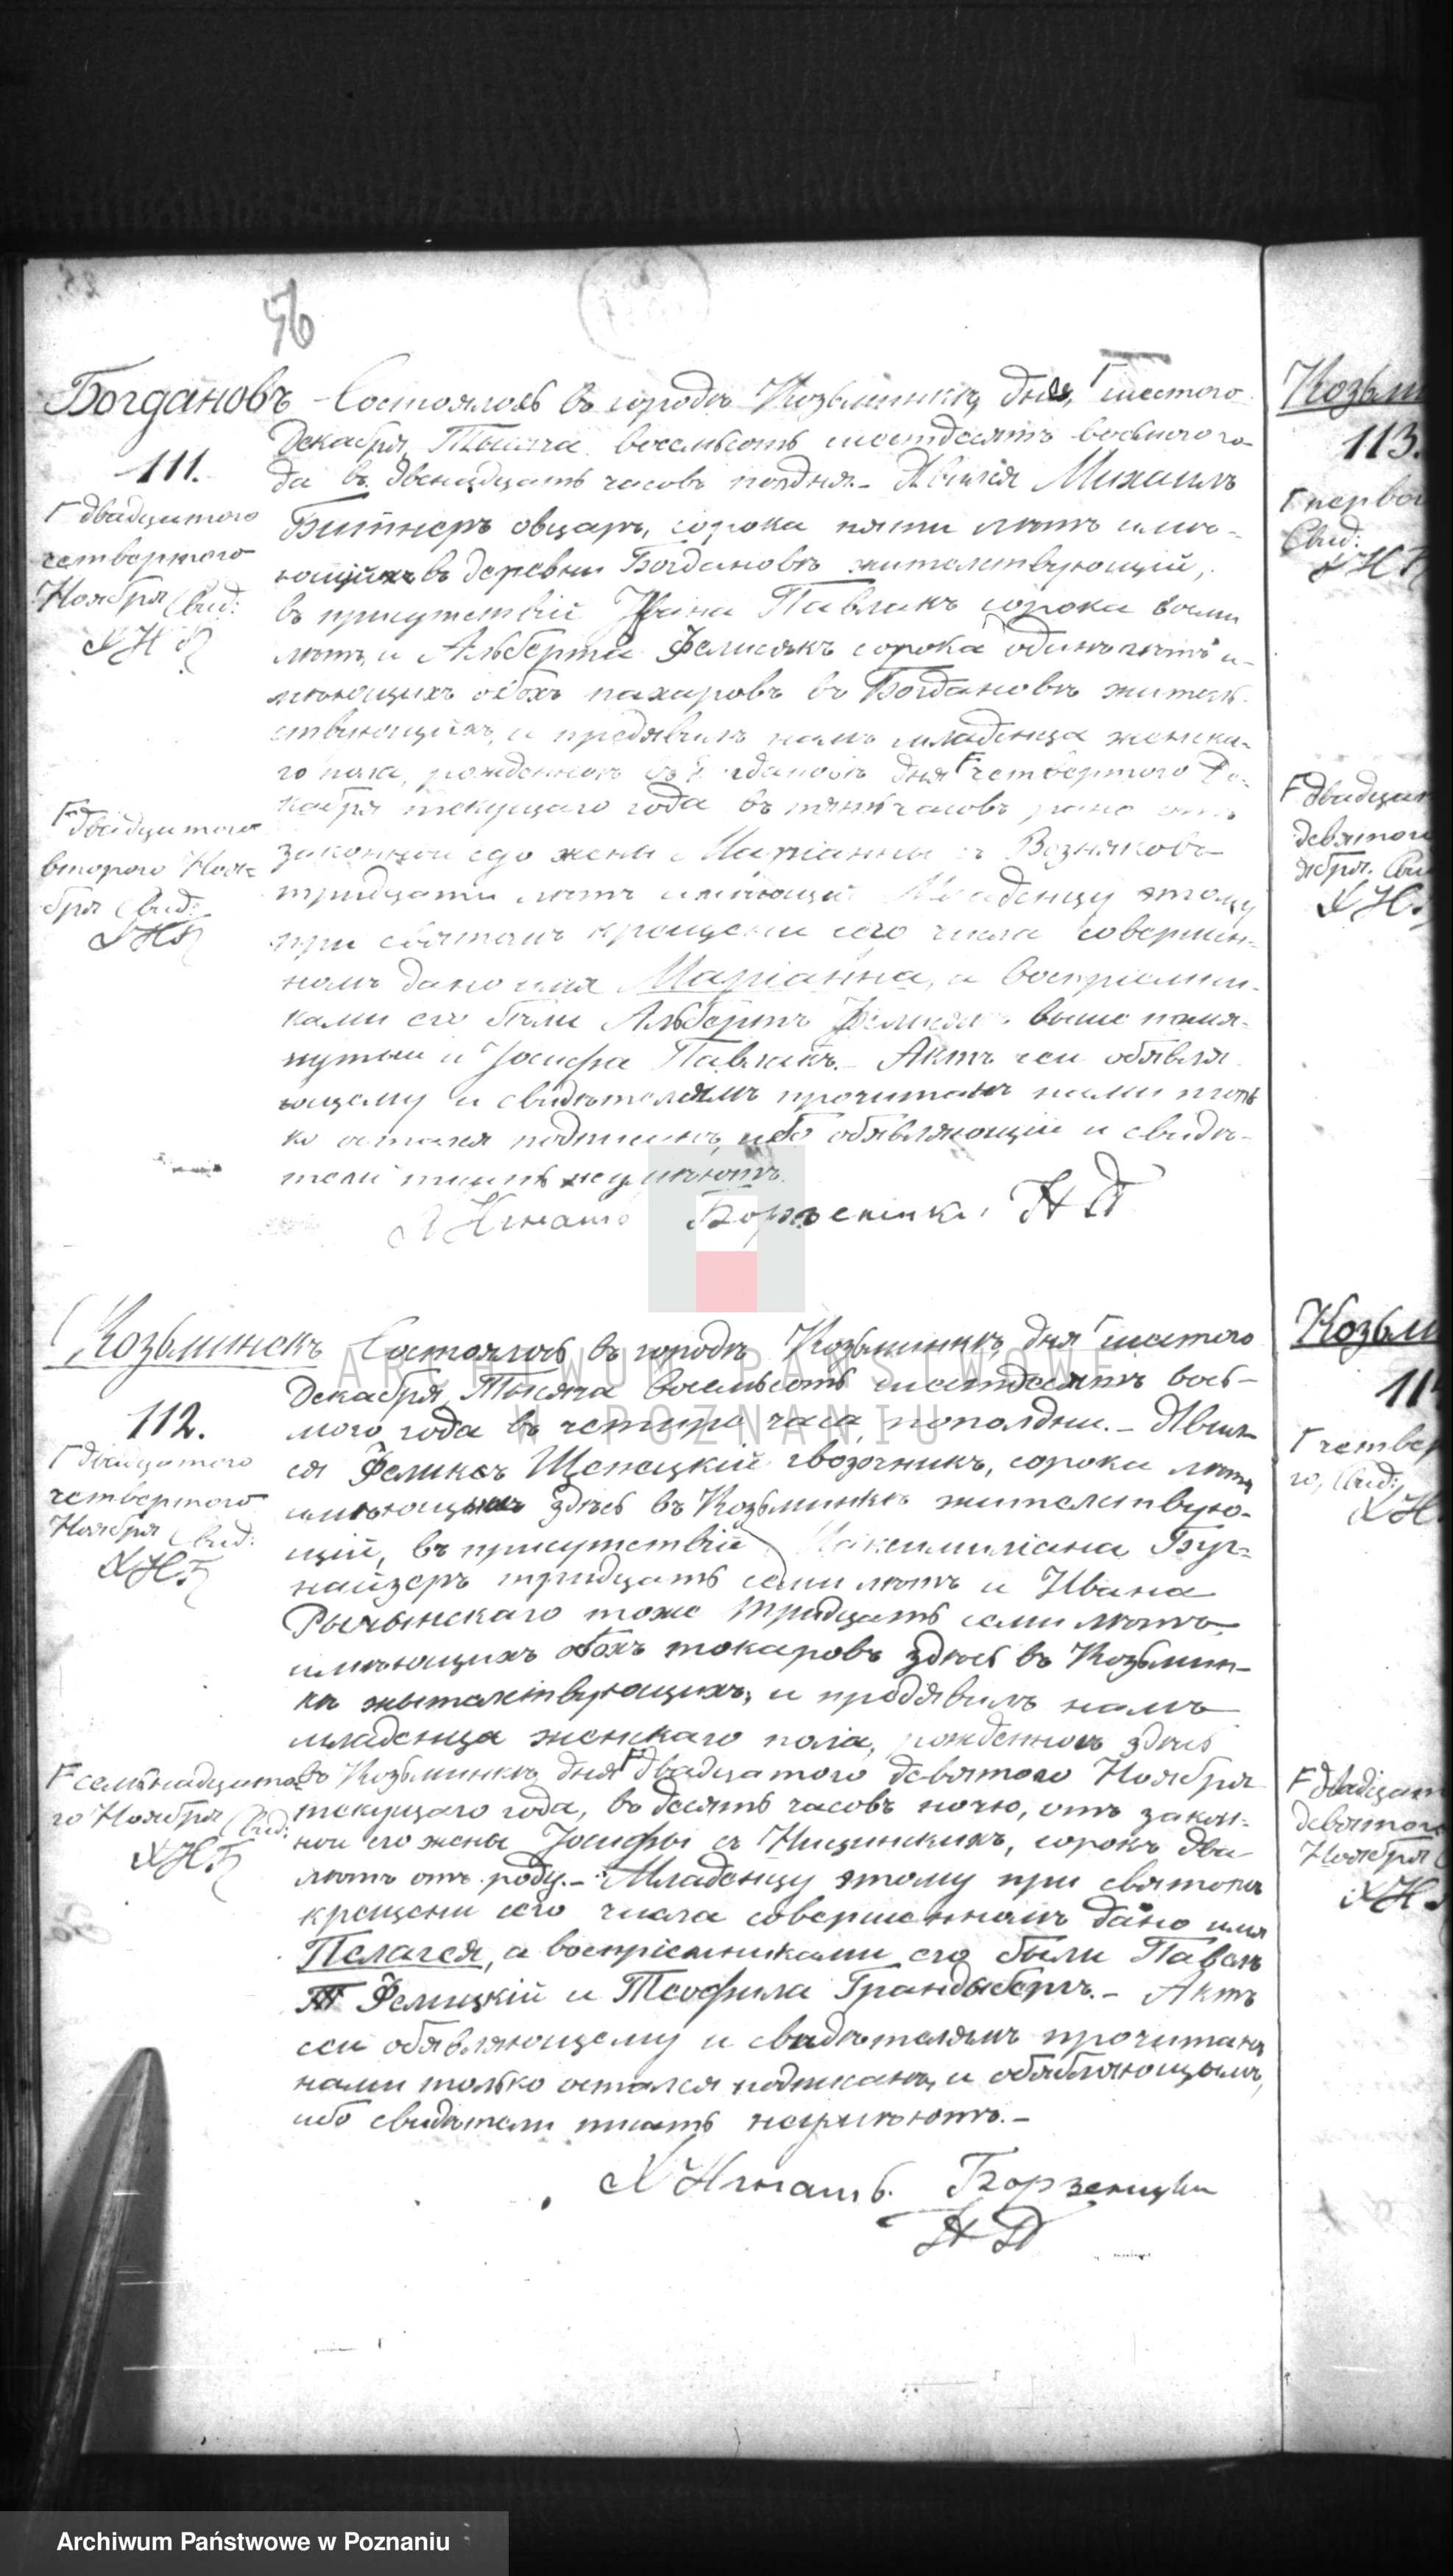 56
Богдановъ
111.
Г двадцатого
четвертого
Ноября Свид:
ХИБ
F двадцатого
второго Нояб
бря Свид:
ХИБ
Состоялось въ городѣ Козьминкѣ дня, Г шестого
Декабря, Тысяча восемьсотъ шестдесятъ восьмого го-
да въ двенадцать часовъ полдня. - Явился Михаилъ
Битнеръ овцаръ, сорока пяти лѣтъ имѣ-
ющій въ деревни Богдановѣ жительствующій,
въ присутствій Яна Павлакъ сорока восми
лѣтъ, и Альберта Фелисякъ сорока одинъ лѣтъ и-
мѣющихъ обохъ пахаровъ въ Богдановѣ житель-
ствующихъ, и предявилъ намъ младенца женска-
го пола, рожденномъ въ Богдановѣ дня F четвертого Де-
кабря текущаго года въ пять часовъ рано отъ
законной его жены Маріанны съ Возняковъ
тридцати лѣтъ имѣющей Младенцу этому
при святомъ крещени сего числа совершен-
номъ дано имя Маріанна, а воспріемни-
ками его были Альбертъ Фелисякъ выше помя-
нутый и Іосифа Павлакъ. - Актъ сей обявля
ющему и свидѣтелямъ прочитанъ нами толь
ко остался подписанъ, ибо обявляющій и свидѣ-
тели писать неумѣютъ.
Х Игнатъ Боржепинка НД
Козьминекъ
112.
Г двадцатого
четвертого
Ноября Свид:
ХИБ
F семьнадцато
го Ноября Свид:
ХИБ
Состоялось въ городѣ Козьминкѣ, дня Г шестого
Декабря, Тысяча восемьсотъ шестдесятъ вось-
мого года въ четыре часа, пополдни. - Явил
ся Феликсъ Щепецкій гвозочникъ, сорока лѣтъ
имѣющій здѣсь въ Козьминкѣ жительствую-
щій, въ присутствій Максимиліана Буг-
найзеръ тридцать семи лѣтъ и Ивана
Рычынскаго тоже тридцать семи лѣтъ
имѣющихъ обохъ токаровъ здѣсь въ Козьмин-
кѣ жытельствующихъ, и предявилъ намъ
младенца женскаго пола, рожденномъ здѣсь
въ Козьминкѣ дня F двадцатого девятого Ноября
текущаго года, въ десять часовъ ночю, отъ закон-
ной его жены Іосифы съ Нищинскихъ, сорокъ два
лѣтъ отъ роду. - Младенцу этому при святомъ
крещени сего числа совершенномъ дано имя
Пелагея, а воспріемниками его были Павелъ
Фелицкій и Теофила Грандыберъ. - Актъ
сей обявляющему и свидѣтелямъ прочитанъ
нами только остался подписанъ, и обябляющымъ,
ибо свидѣтели писать неумѣютъ. -
Х Игнатъ. Борзенцки
НД
Козьм
113.
Г первог
Свид:
ХИБ
F двадцат
девятого
ября. Сви
ХИ
Козьми
11
Г четвер
го, Свид:
ХИ
F двадцат
девятого
Ноября
ХИ
ARCHIWUM PAŃSTWOWE
W POZNANIU
Archiwum Państwowe w Poznaniu